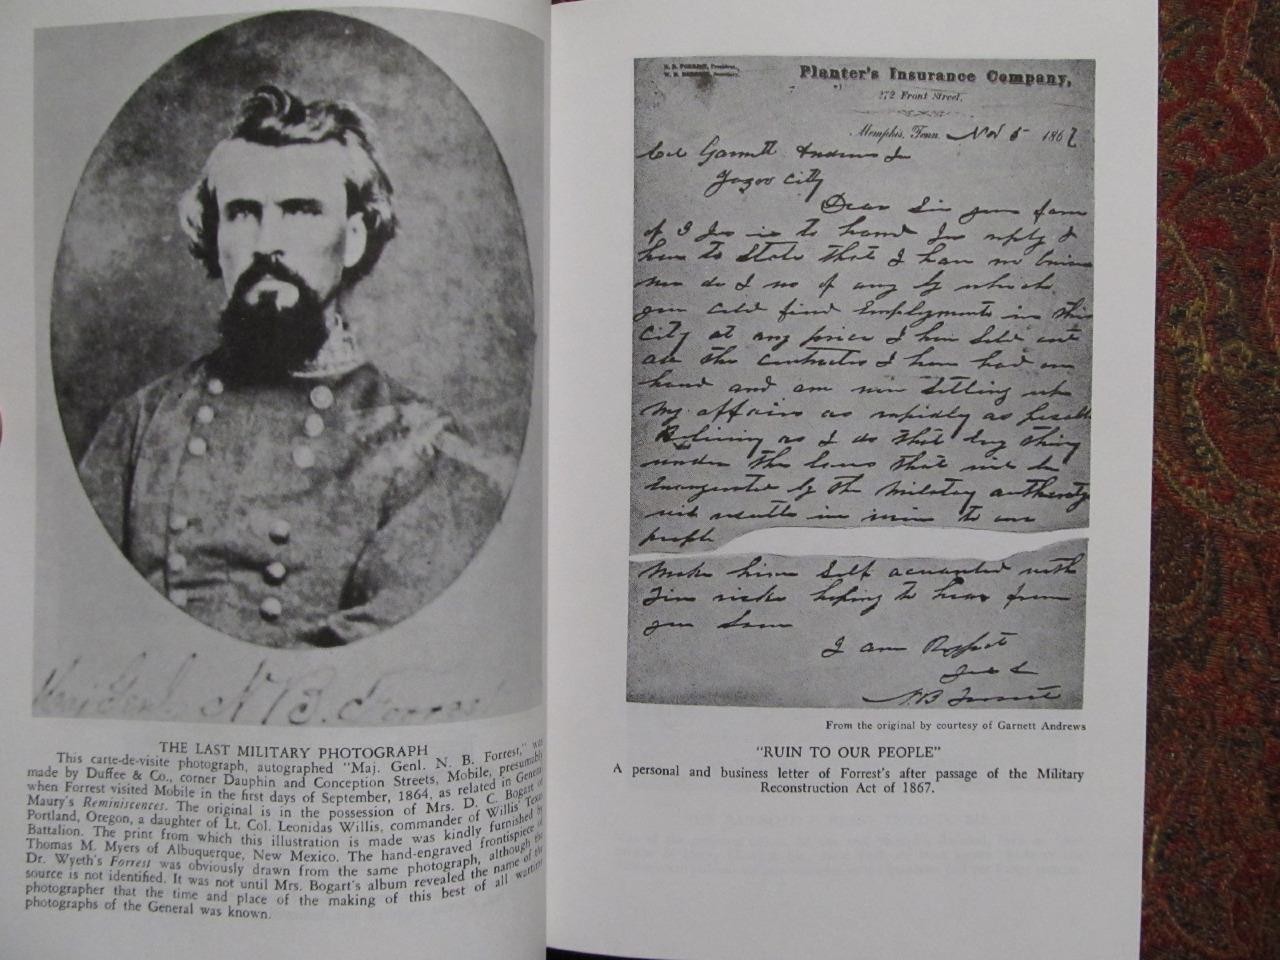 Maj. Genl. N. B. Forrest
THE LAST MILITARY PHOTOGRAPH
This carte-de-visite photograph, autographed "Maj. Genl. N. B. Forrest," was
made by Duffee & Co., corner Dauphin and Conception Streets, Mobile, presumably
when Forrest visited Mobile in the first days of September, 1864, as related in General
Maury's Reminiscences. The original is in the possession of Mrs. D. C. Bogart of
Portland, Oregon, a daughter of Lt. Col. Leonidas Willis, commander of Willis' Texas
Battalion. The print from which this illustration is made was kindly furnished by
Thomas M. Myers of Albuquerque, New Mexico. The hand-engraved frontispiece of
Dr. Wyeth's Forrest was obviously drawn from the same photograph, although the
source is not identified. It was not until Mrs. Bogart's album revealed the name of the
photographer that the time and place of the making of this best of all wartime
photographs of the General was known.
N. B. FORREST, President,
Planter's Insurance Company,
272 Front Street,
Memphis, Tenn. Nov 5 1867
Col Garnett Andrews Jr
Yazoo City
Dear Sir your favor
of 3 Ins is to hand In reply I
have to State that I have no
nor do I no of any by which
you cold find Employment in this
City at any price I have Sold out
all the contracts I have had on
hand and am now Settling up
my affairs as rapidly as
Believing as I do that Evry thing
under the laws that will be
by the Military authority
will results in ruin to our
people
make him Self acquanted with
Fire risks hoping to hear from
you Soon
I am Respct
N. B. Forrest
From the original by courtesy of Garnett Andrews
"RUIN TO OUR PEOPLE"
A personal and business letter of Forrest's after passage of the Military
Reconstruction Act of 1867.